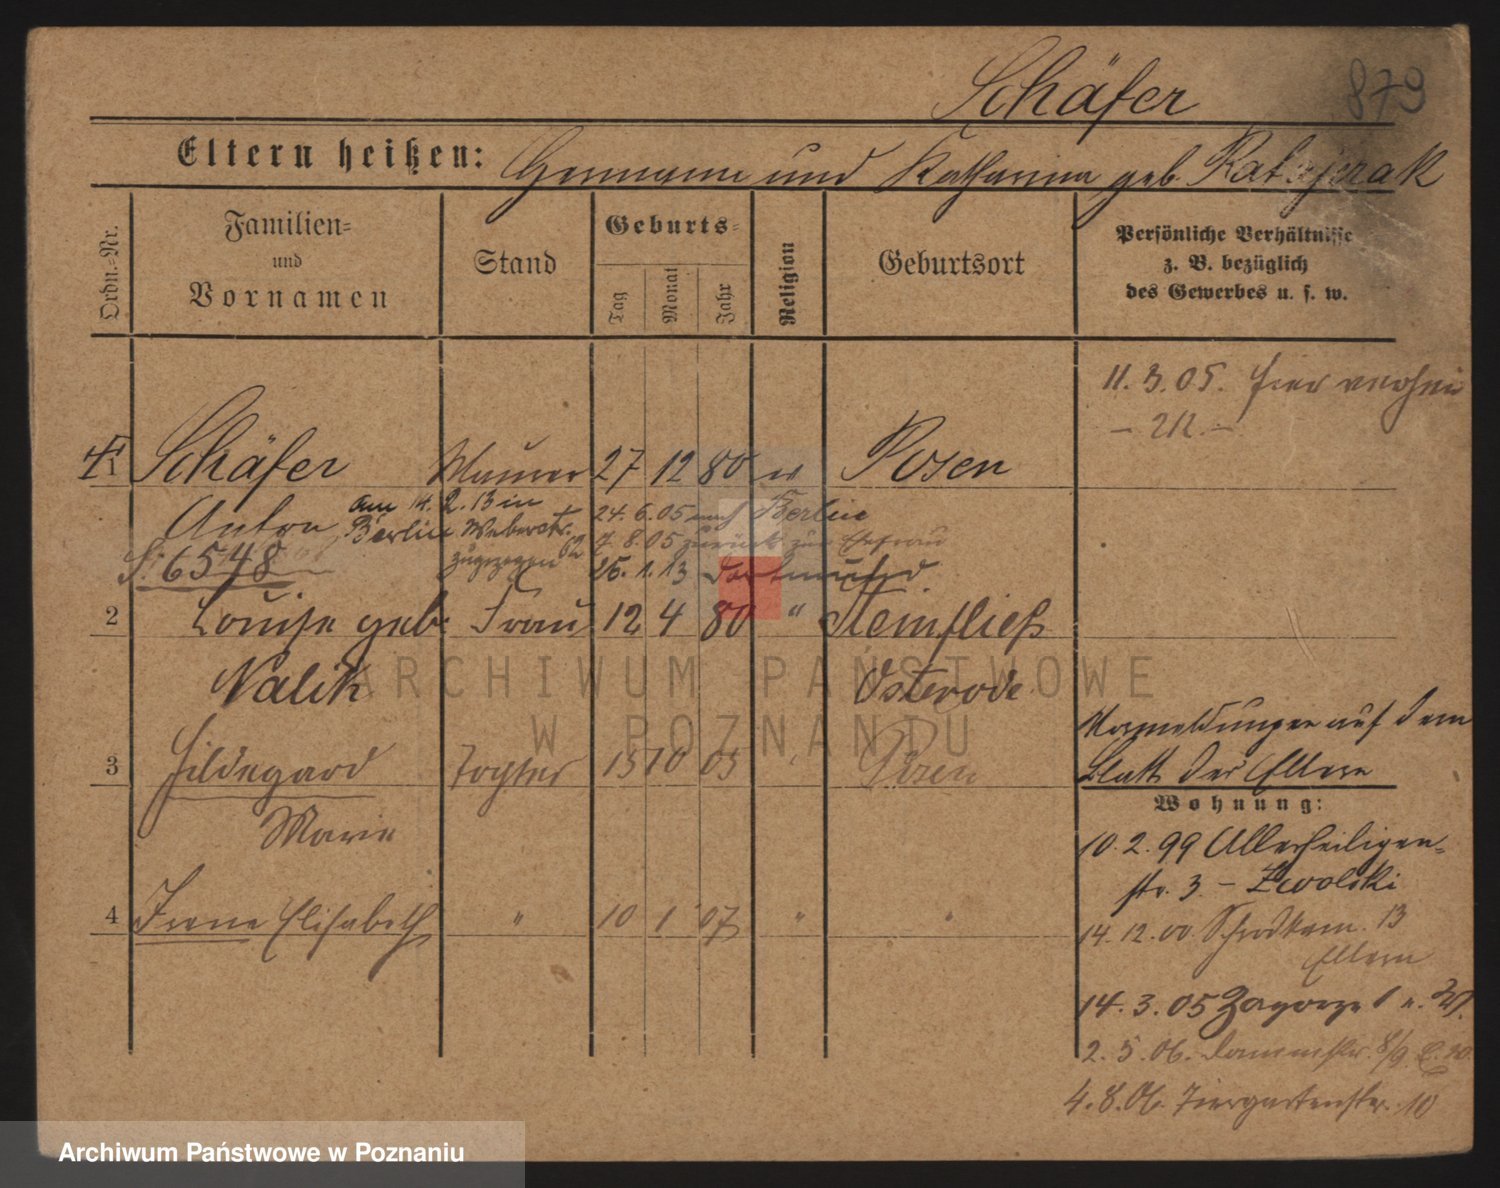 Schäfer 879
Eltern heißen: Hermann und Katharina geb. Ratajczak
Ordn.-Nr.
Familien- und Vornamen
Stand
Geburts-
Tag Monat Jahr
Religion
Geburtsort
Persönliche Verhältnisse
z. B. bezüglich
des Gewerbes u. s. w.
11. 3. 05. hier
1 Schäfer Maurer 27 12 80 Posen
Anton am 14. 2. 13 in
Berlin Weberstr. 62
zugezogen
24. 6. 05 nach Berlin
7. 8. 05 zurück zur Ehefrau
26. 1. 13 Dortmund
6548
2 Louise geb. Frau 12 4 80 " Steinfließ
Nalik Osterode
3 Hildegard Tochter 15 10 05 Posen
Marie
auf dem
Blatt der Eltern
4 Irene Elisabeth " 10 1 07 " "
Wohnung:
10. 2. 99 Allerheiligen-
str. 3 - Zwolski
14. 12. 00 Schrodkam. 13
Eltern
14. 3. 05 Zagorze 1
2. 5. 06. Dammstr. 8/9
4. 8. 06. Tiergartenstr. 10
ARCHIWUM PAŃSTWOWE
W POZNANIU
Archiwum Państwowe w Poznaniu